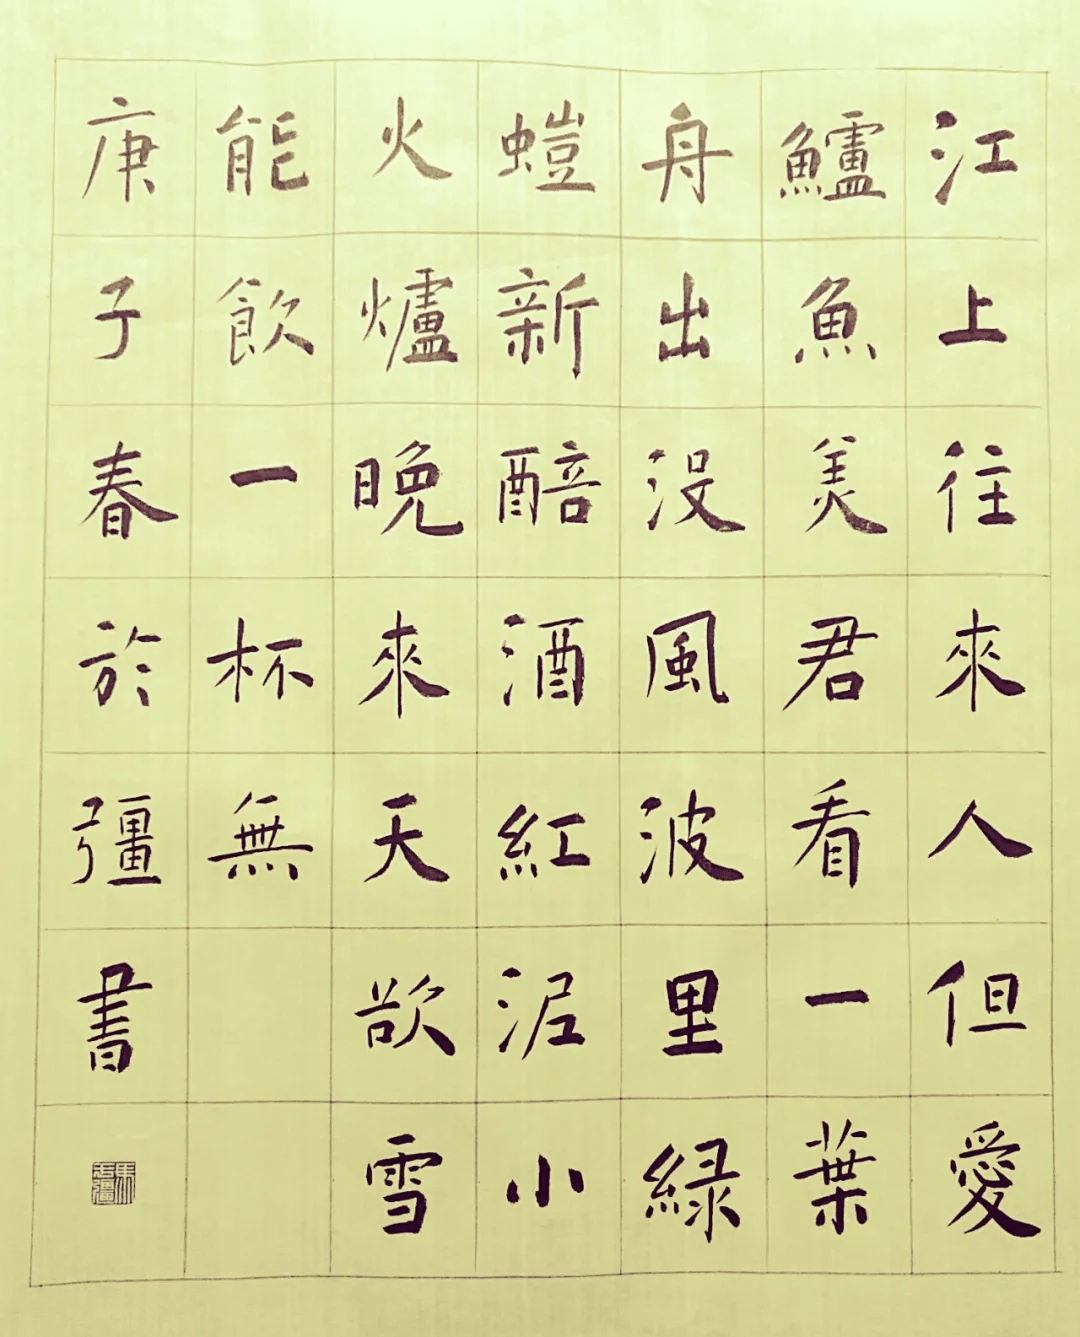 江上往來人但愛
鱸魚美君看一葉
舟出没風波里緑
螘新醅酒紅泥小
火爐晚來天欲雪
能飲一杯無
庚子春於彊書